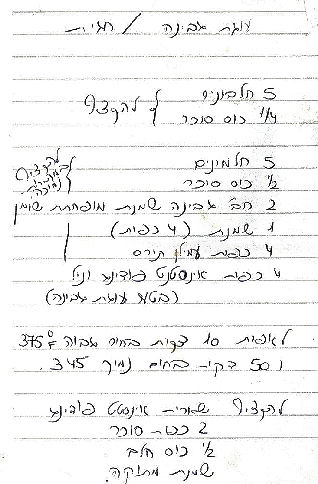 עוגת גבינה / חגית
5 חלבונים
1/4 כוס סוכר
להקציף
5 חלמונים
1/2 כוס סוכר
2 חב' גבינה שמנת מופחתת שומן
1 שמנת (4 כפות)
4 כפות עמילן תירס
4 כפות אינסטנט פודינג וניל
(בטעם עוגת גבינה)
לאפות 10 דקות בחום גבוה 375°F
ו 50 דקות בחום נמוך 345.
להקציף שארית אינסטנט פודינג
2 כפות סוכר
1/2 כוס חלב
שמנת מתוקה.